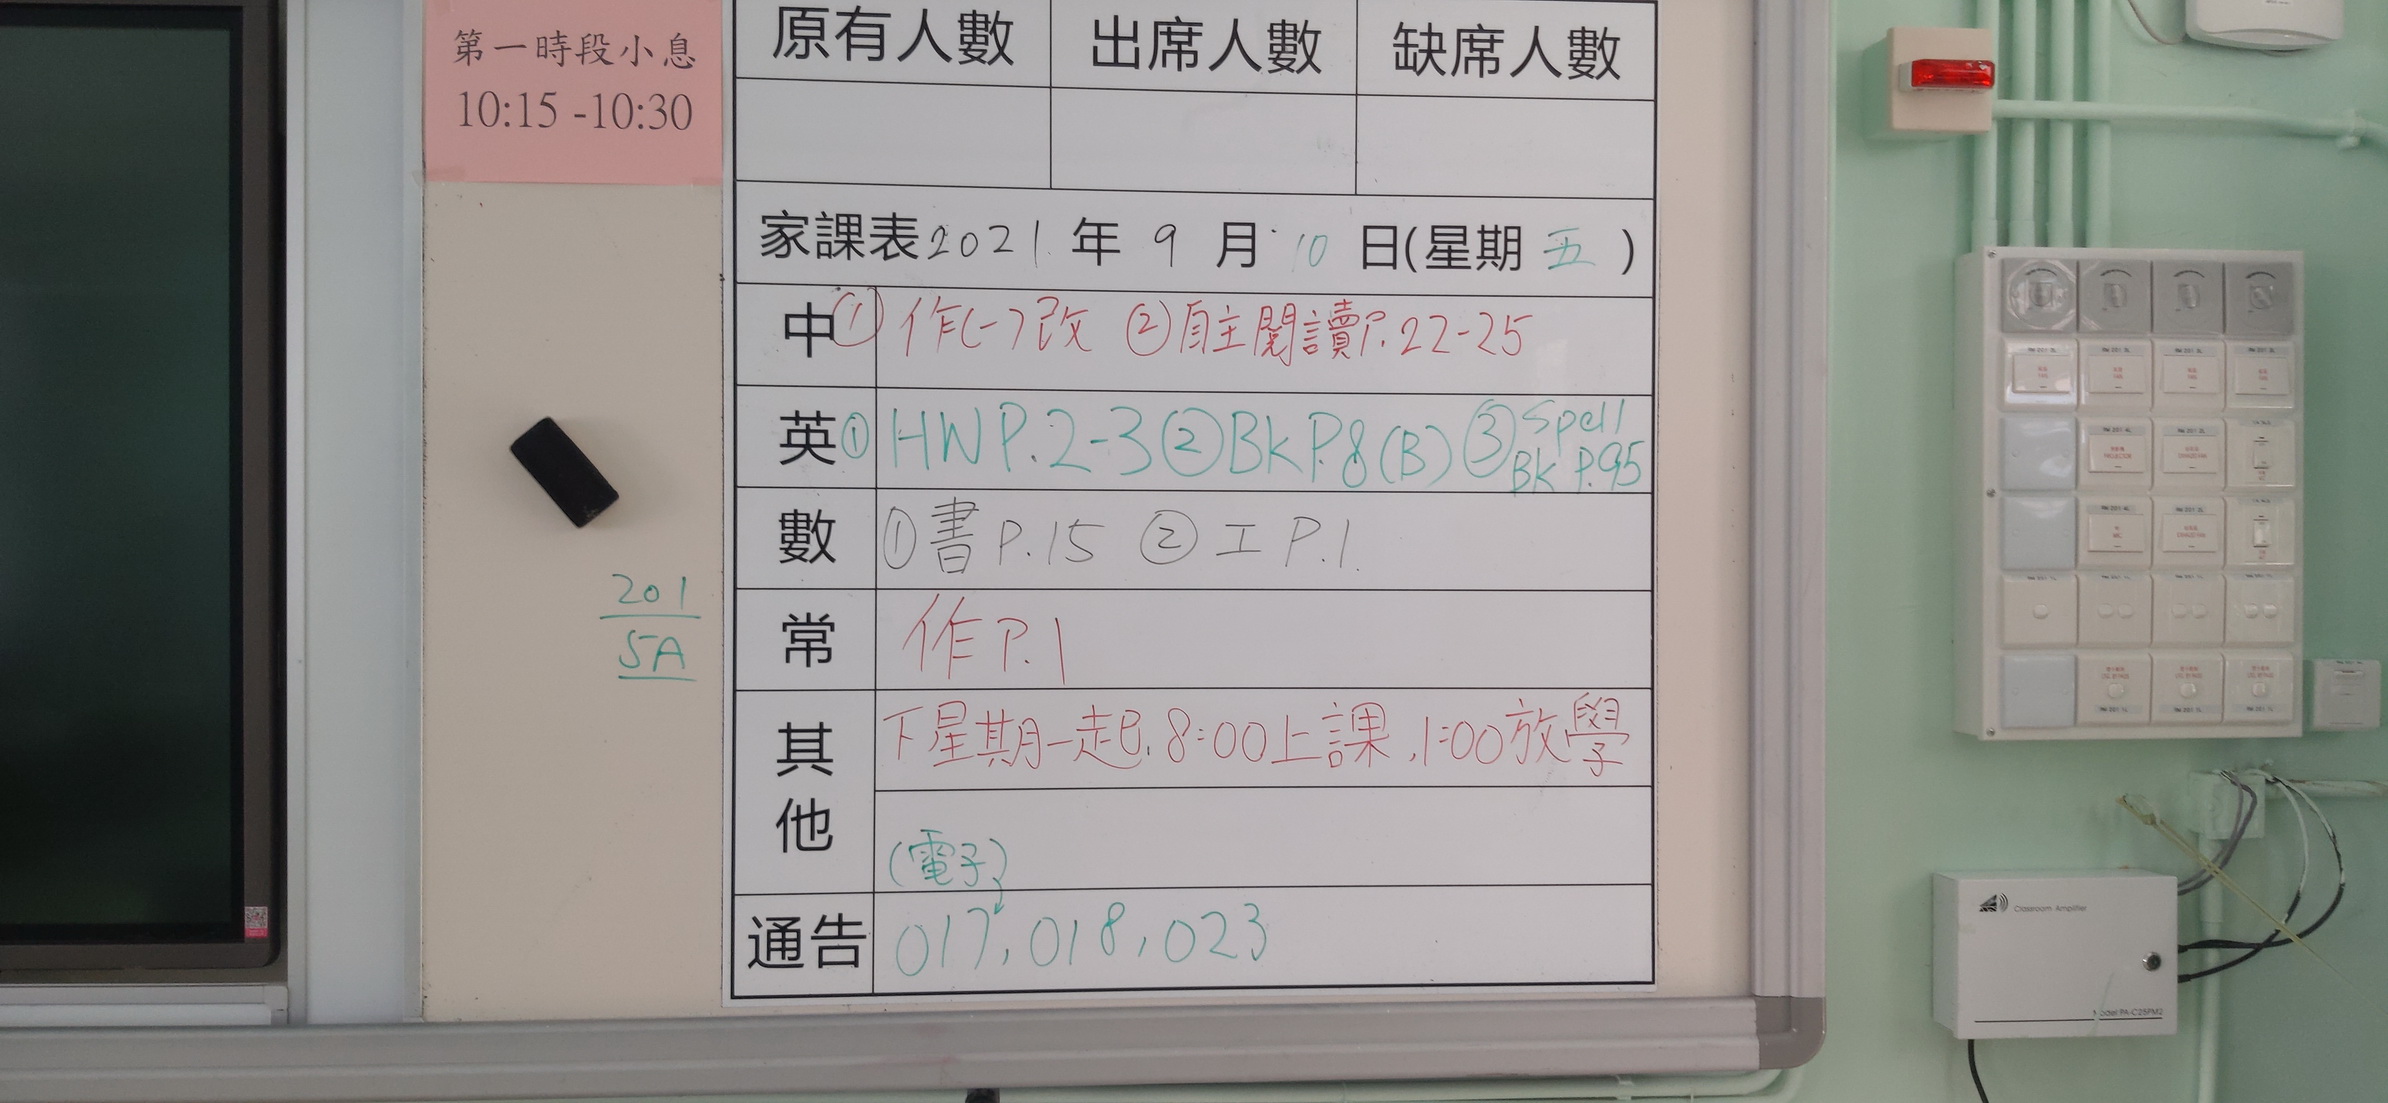 第一時段小息
10:15 -10:30
原有人數 出席人數 缺席人數
家課表2021年 9 月 10 日(星期 五 )
中 ① 作(一)改 ②自主閱讀P.22-25
英 ① HW P.2-3 ② BK P.8 (B) ③ Spell BK P.95
數 ①書 P.15 ② 工 P.1
201
5A
常 作 P.1
其他 下星期一起, 8:00上課, 1:00放學
(電子)
通告 017, 018, 023
Classroom Amplifier
Model PA-C25PM2